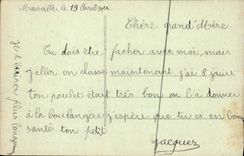 Marseille le 19 Avril
Chère grand'Mère
Tu dois etre facher avec moi, mais
j'aller en classe maintenant j'ai 8 jours
ton poulet était très bon on l'a donner
à la boulangere j'espere que tu es en bon
santé ton petit
Jacques
Je t'écrirai plus longue